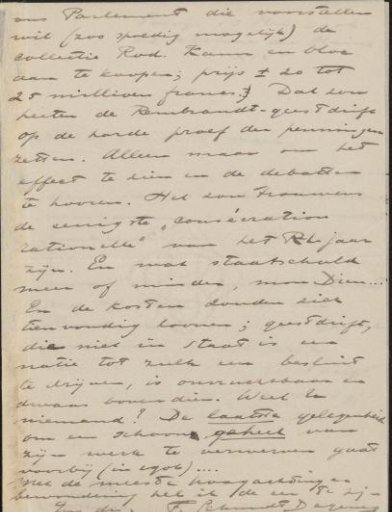 ons Parlement die voorstellen
wil (zoo spoedig mogelijk) de
collectie Rod. Kann en bloc
aan te koopen; prijs ± 20 tot
25 millioen francs.) Dat zou
heeten de Rembrandt-geestdrift
op de harde proef der penningen
zetten. Alleen maar om het
effect te zien en de debatten
te hooren. Het zou trouwens
de eenigste "consécration
rationelle" van het R.jaar
zijn. En wat staatschuld
meer of minder, mon Dieu...
En de kosten zouden zich
tienvoudig loonen; geestdrift,
die niet in staat is een
natie tot zulk een besluit
te drijven, is onvruchtbaar en
dwaas bovendien. Weet U
niemand? De laatste gelegenheid
om een schoon geheel van
zijn werk te verwerven gaat
voorbij (in 1906)....
Met de meeste hoogachting en
bewondering heb ik de eer te zijn
F. Schmidt Degener